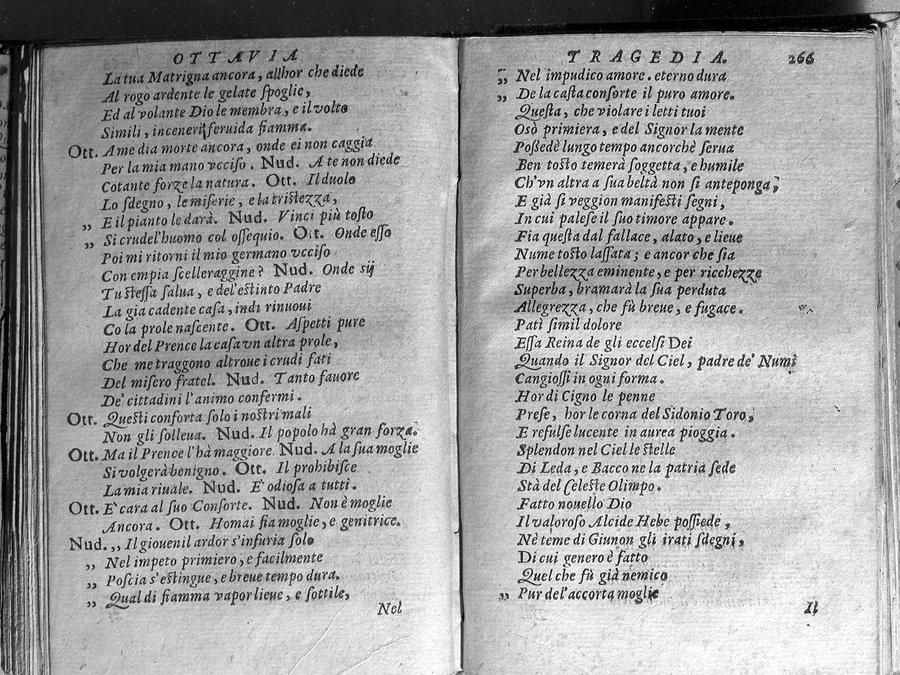 OTTAVIA
La tua Matrigna ancora, allhor che diede
Al rogo ardente le gelate ſpoglie,
Ed al volante Dio le membra, e il volto
Simili, inceneri feruida fiamma.
Ott. A me dia morte ancora, onde ei non caggia
Per la mia mano vcciſo. Nud. A te non diede
Cotante forze la natura. Ott. Il duolo
Lo ſdegno, le miſerie, e la triſtezza,
„ E il pianto le darà. Nud. Vinci più toſto
„ Si crudel'huomo col oſſequio. Ott. Onde eſſo
Poi mi ritorni il mio germano vcciſo
Con empia ſcelleraggine? Nud. Onde sij
Tu ſteſſa ſalua, e del'eſtinto Padre
La gia cadente caſa, indi rinuoui
Co la prole naſcente. Ott. Aſpetti pure
Hor del Prence la caſa vn altra prole,
Che me traggono altroue i crudi fati
Del miſero fratel. Nud. Tanto fauore
De' cittadini l'animo confermi.
Ott. Queſti conforta ſolo i noſtri mali
Non gli ſolleua. Nud. Il popolo hà gran forza.
Ott. Ma il Prence l'hà maggiore. Nud. A la ſua moglie
Si volgerà benigno. Ott. Il prohibiſce
La mia riuale. Nud. E' odioſa a tutti.
Ott. E' cara al ſuo Conſorte. Nud. Non è moglie
Ancora. Ott. Homai fia moglie, e genitrice.
Nud. „ Il giouenil ardor s'infuria ſolo
„ Nel impeto primiero, e facilmente
„ Poſcia s'eſtingue, e breue tempo dura.
„ Qual di fiamma vapor lieue, e ſottile,
Nel
TRAGEDIA. 266
„ Nel impudico amore. eterno dura
„ De la caſta conſorte il puro amore.
Queſta, che violare i letti tuoi
Osò primiera, e del Signor la mente
Poſſedè lungo tempo ancorchè ſerua
Ben toſto temerà ſoggetta, e humile
Ch'vn altra a ſua beltà non ſi anteponga;
E già ſi veggion manifeſti ſegni,
In cui paleſe il ſuo timore appare.
Fia queſta dal fallace, alato, e lieue
Nume toſto laſſata; e ancor che ſia
Per bellezza eminente, e per ricchezze
Superba, bramarà la ſua perduta
Allegrezza, che fù breue, e fugace.
Patì ſimil dolore
Eſſa Reina de gli eccelſi Dei
Quando il Signor del Ciel, padre de' Numi
Cangioſſi in ogni forma.
Hor di Cigno le penne
Preſe, hor le corna del Sidonio Toro,
E refulſe lucente in aurea pioggia.
Splendon nel Ciel le ſtelle
Di Leda, e Bacco ne la patria ſede
Stà del Celeſte Olimpo.
Fatto nouello Dio
Il valoroſo Alcide Hebe poſſiede,
Nè teme di Giunon gli irati ſdegni,
Di cui genero è fatto
Quel che fù già nemico
„ Pur del'accorta moglie
Il